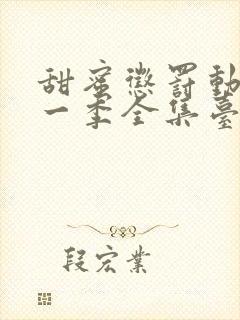 甜蜜懲罰動
一季全集臺
段宏業